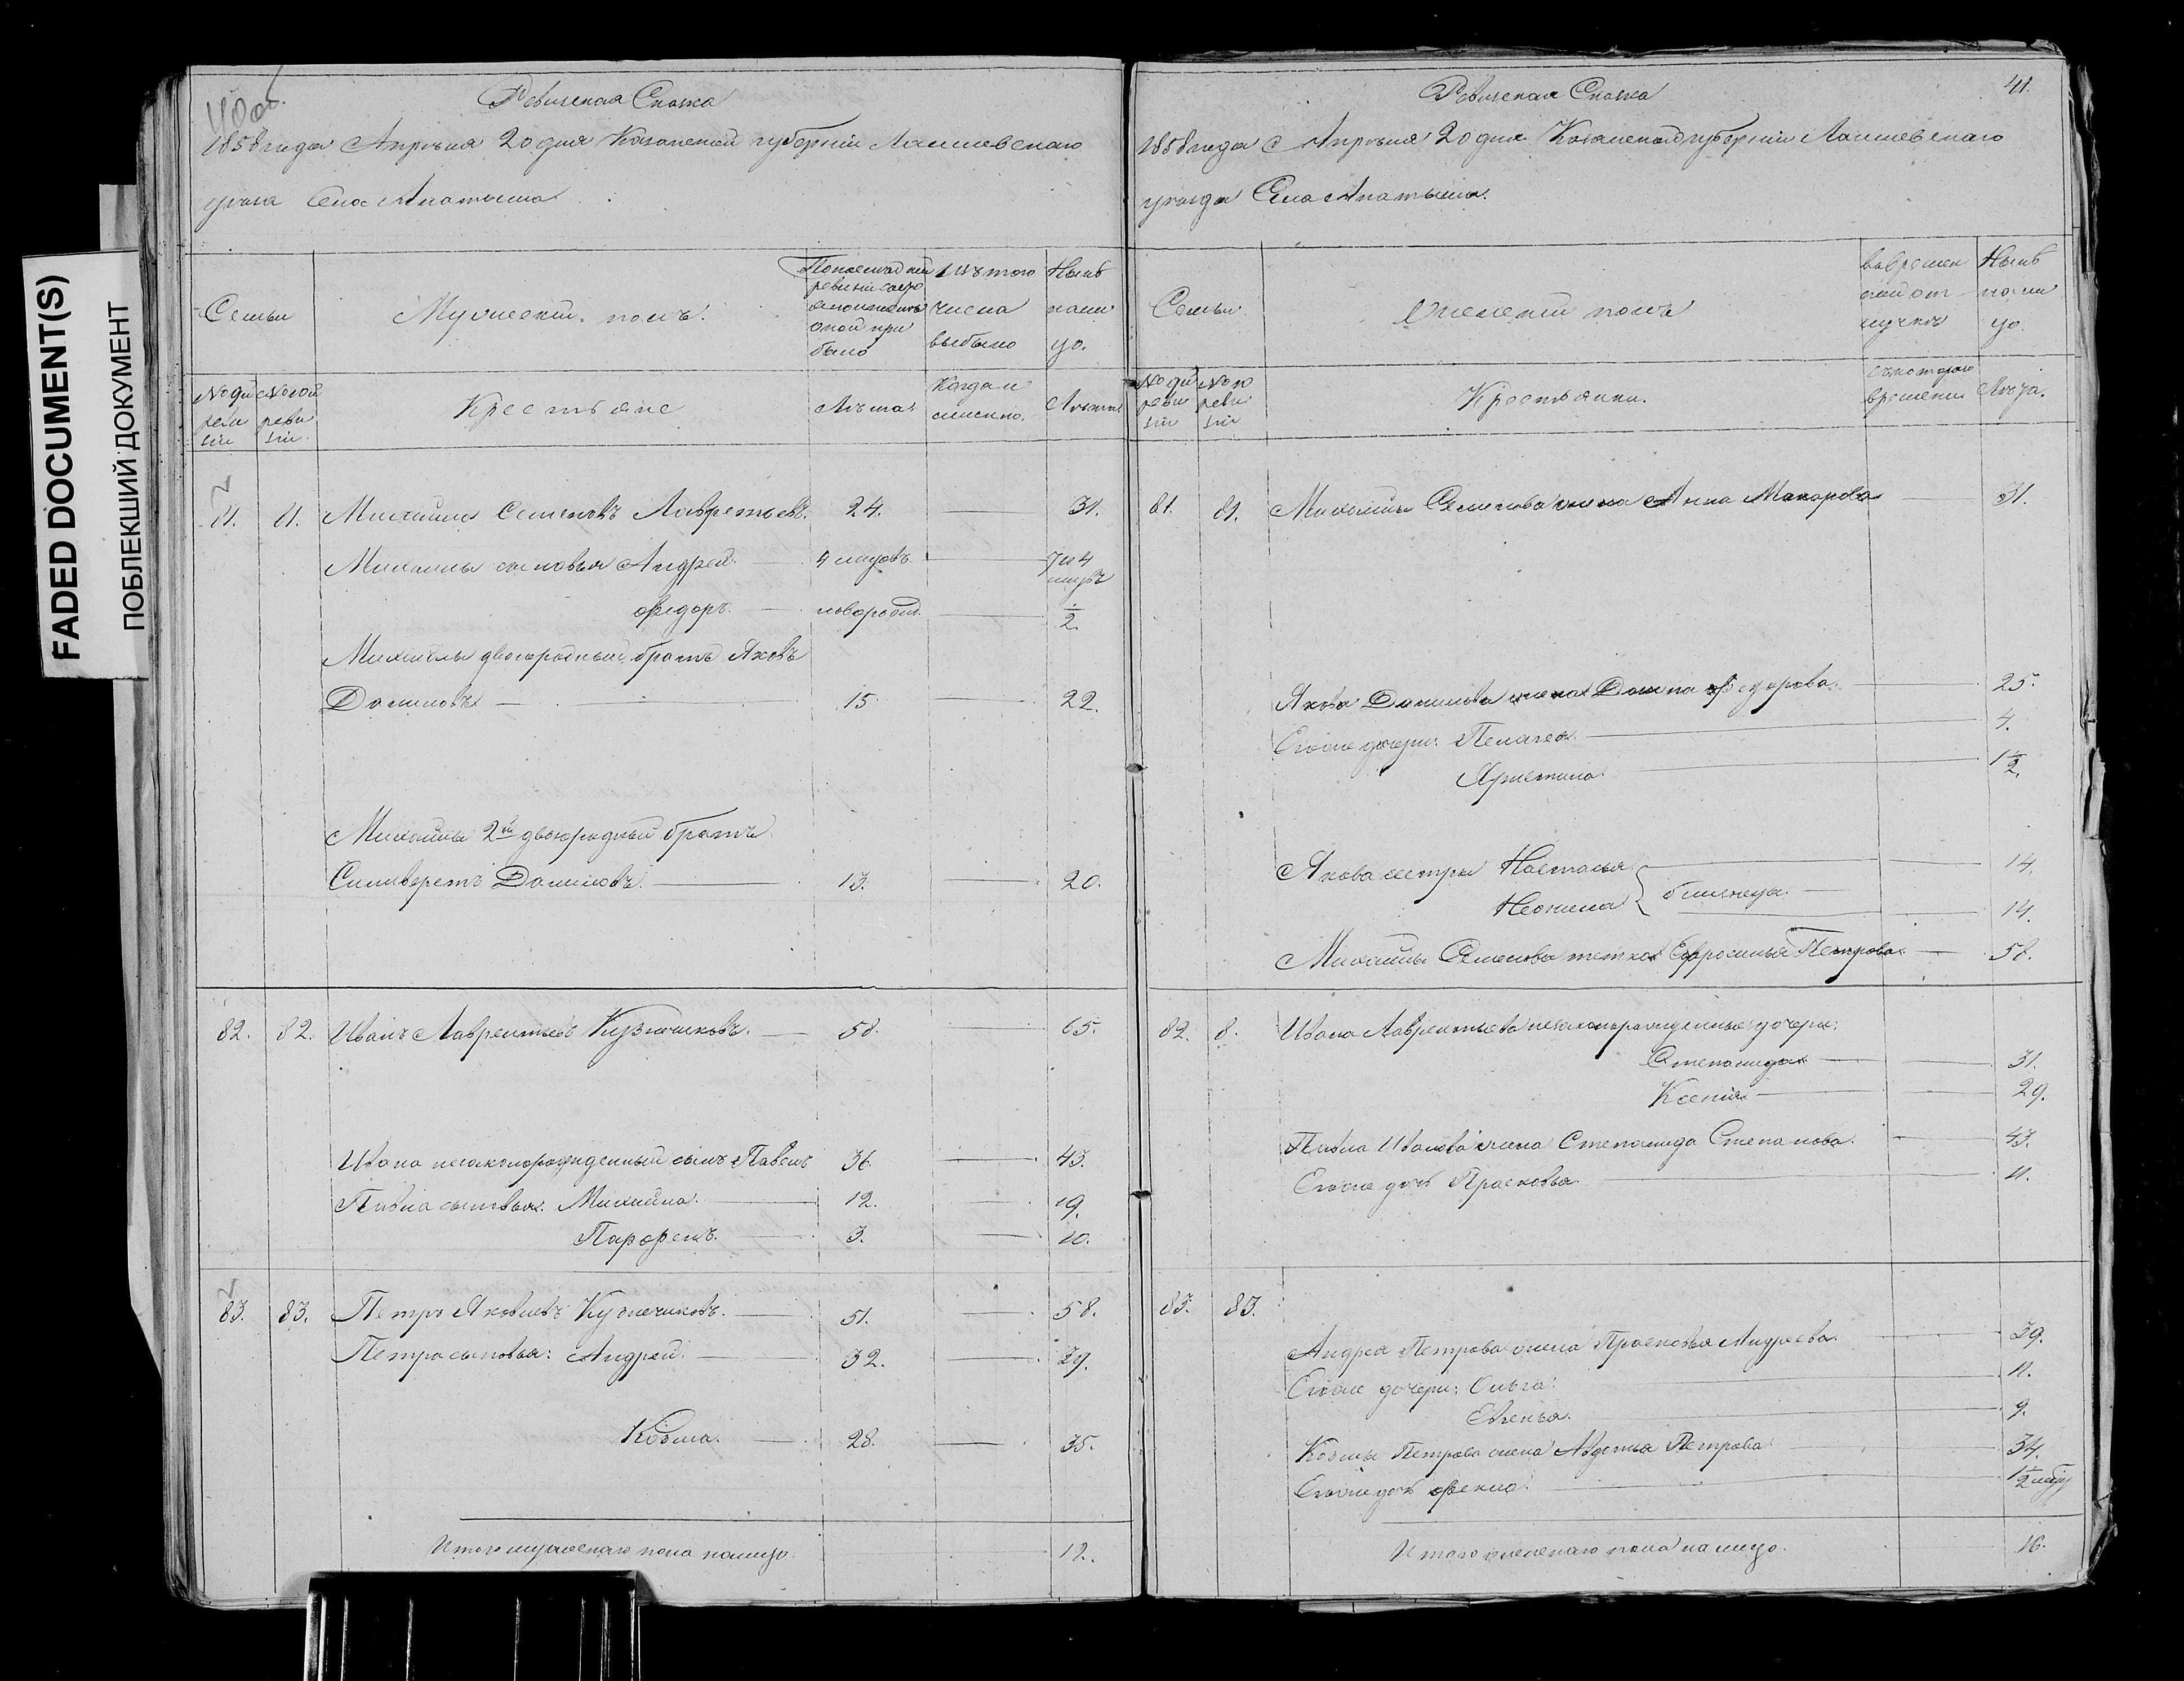 FADED DOCUMENT(S)
ПОБЛЕКШИЙ ДОКУМЕНТ
40 об.
Ревизская Сказка
1858 года Апрѣля 20 дня Казанской губерніи Лаишевскаго
уѣзда Села
Семьи
Мужескій полъ.
По последней ревизіи состояло и после оной прибыло
Изъ того числа выбыло
Нынѣ на лицо.
№ по ревизіи
№ по сей ревизіи
Крестьяне
Лѣта
Когда и
Лѣта
81. 81. Михайла Семеновъ Лаврентьевъ. 24. 31.
Михайлы сыновья Андрей. 4 месцовъ. 7 и 4 месцъ
Ѳедоръ. новорожд. 1/2.
Михайлы двоюродный братъ Яковъ
Даниловъ 15. 22.
Михайлы 2й двоюродный братъ
Силиверстъ Даниловъ. 13. 20.
82. 82. Иванъ Лаврентьевъ Кузнечиковъ. 58. 65.
Ивана незаконорожденный сынъ Павелъ 36. 43.
Павла сыновья. Михайла. 12. 19.
Парфенъ. 3. 10.
83. 83. Петръ Яковлевъ Кузнечиковъ. 51. 58.
Петра сыновья: Андрей. 32. 39.
Козма. 28. 35.
Итого мужескаго пола налицо. 12.
41.
Ревизская Сказка
1858 года Апрѣля 20 дня Казанской губерніи Лаишевскаго
уѣзда Села
Семьи.
Женскій полъ
во временной отлучкѣ
Нынѣ на лицо.
№ по ревизіи
№ по ревизіи
Крестьянки.
съ котораго времени
Лѣта.
81. 81. Михайлы Семенова жена Анна Макарова 31.
Якова Данилова жена Домна Ѳедорова. 25.
Ево же дочери: Пелагея. 4.
Устинья. 1/2.
Якова сестры Настасья. 14.
Неонила близнецы. 14.
Михайлы Семенова тетка Ефросинья Петрова. 58.
82. 8. Ивана Лаврентьева незаконорожденные дочери:
Степанида 31.
Ксенія 29.
Павла Иванова жена Степанида Степанова. 43.
Ево же дочь Прасковья 11.
83. 83.
Андрея Петрова жена Прасковья Андреева. 39.
Ево же дочери: Ольга: 11.
Евгенья. 9.
Козмы Петрова жена Авдотья Петрова. 34.
Ево же дочь Ѳекла. 1/2
Итого женскаго пола на лицо. 16.